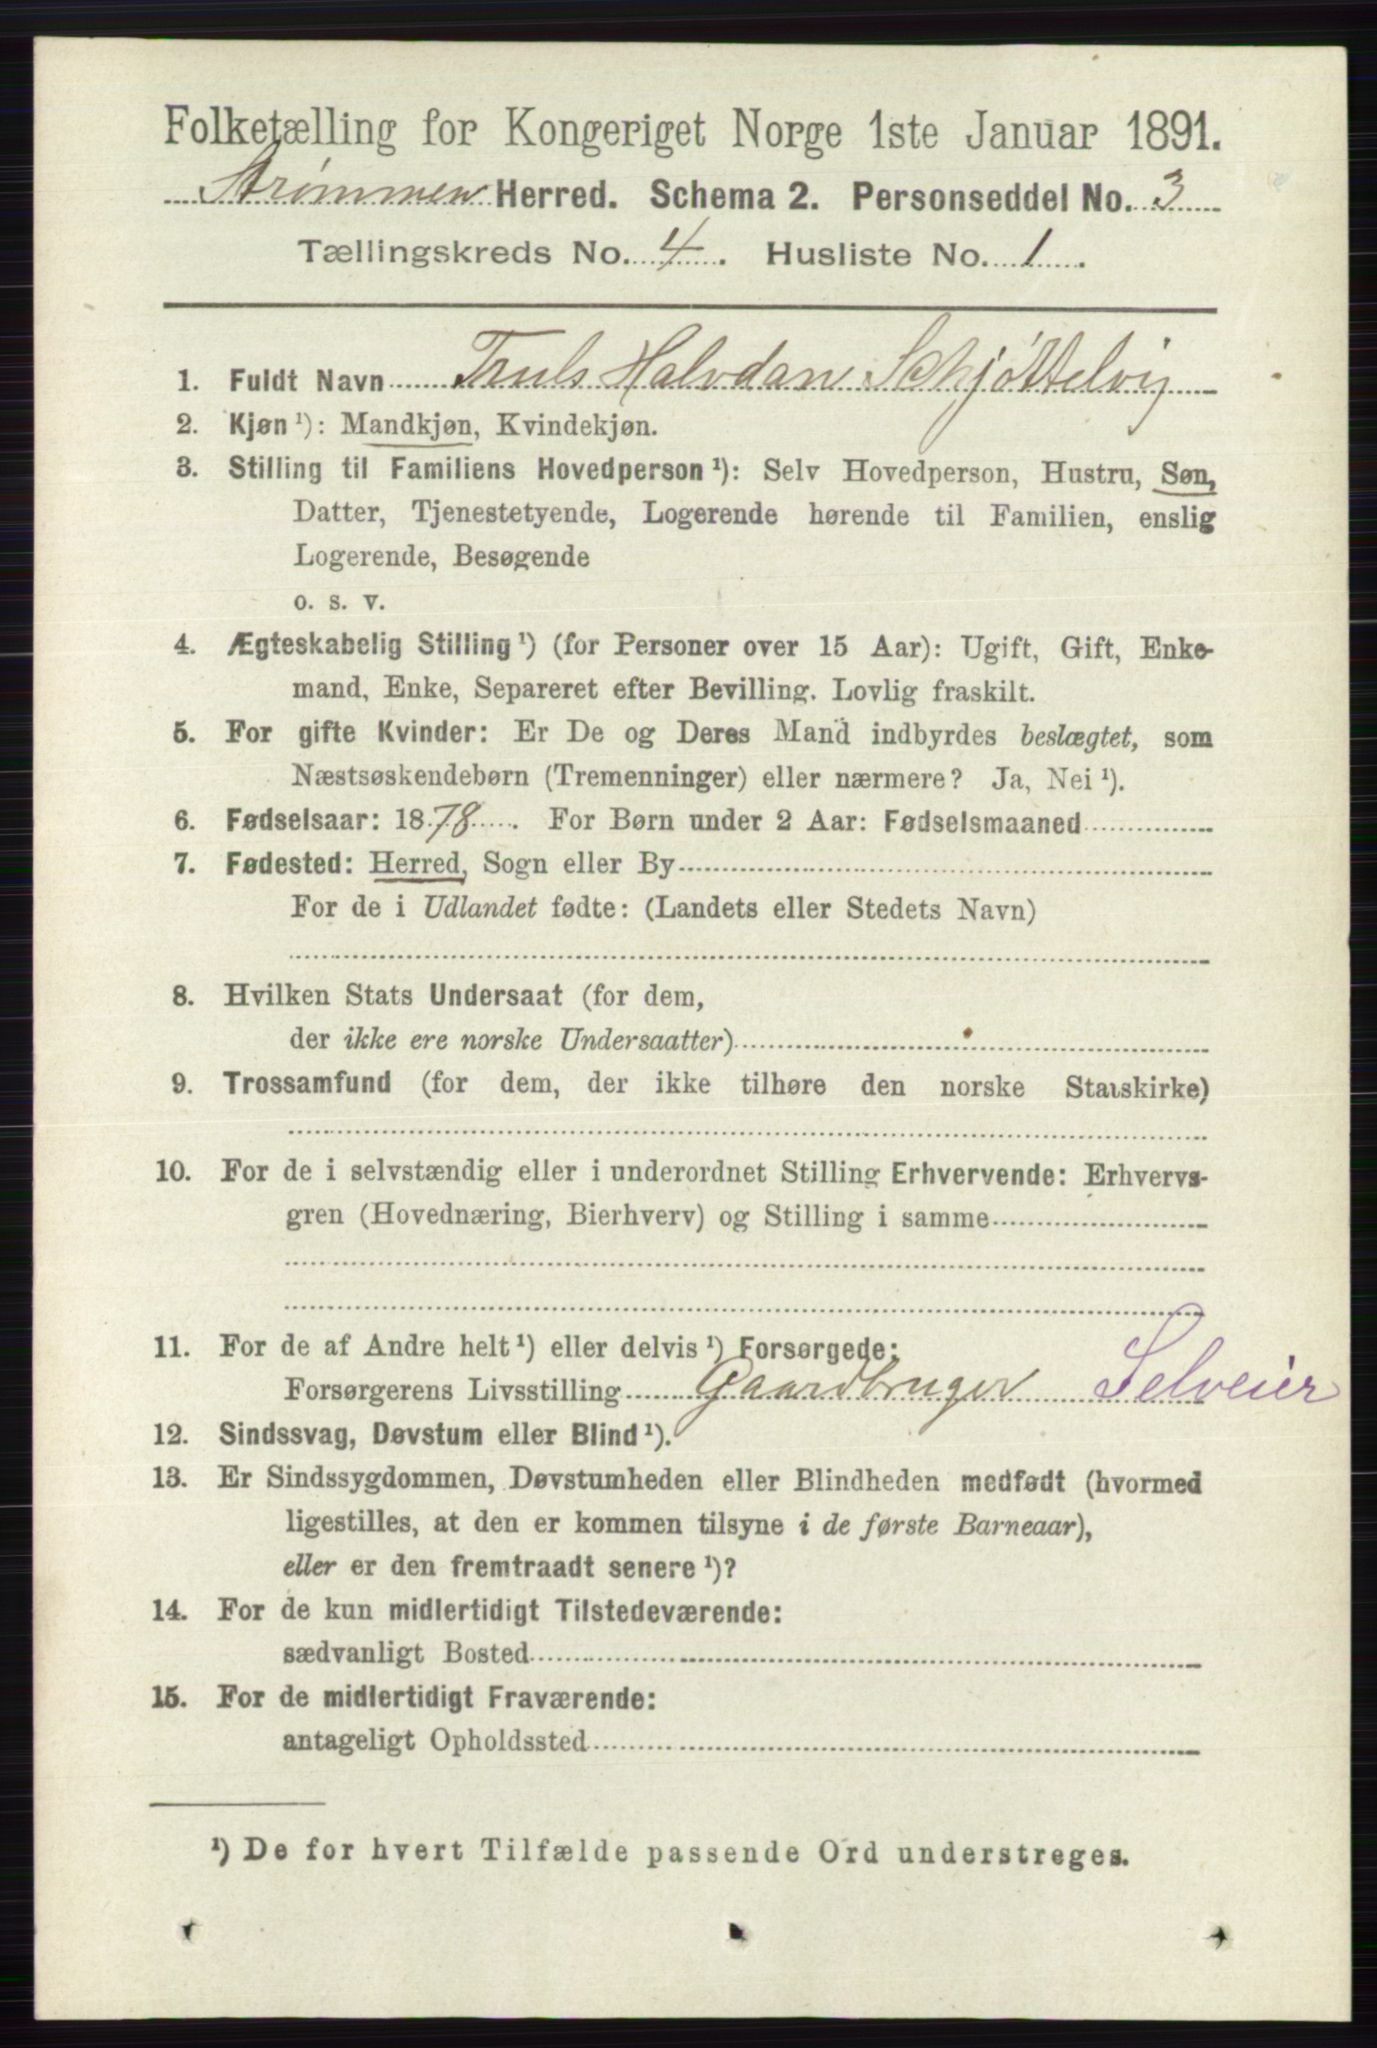 Folketælling for Kongeriget Norge 1ste Januar 1891.
Strømmen Herred. Schema 2. Personseddel No. 3
Tællingskreds No. 4. Husliste No. 1.
1. Fuldt Navn Truls Halvdan Schjøttelvig
2. Kjøn¹): Mandkjøn, Kvindekjøn.
3. Stilling til Familiens Hovedperson¹): Selv Hovedperson, Hustru, Søn,
Datter, Tjenestetyende, Logerende hørende til Familien, enslig
Logerende, Besøgende
o. s. v.
4. Ægteskabelig Stilling¹) (for Personer over 15 Aar): Ugift, Gift, Enke-
mand, Enke, Separeret efter Bevilling. Lovlig fraskilt.
5. For gifte Kvinder: Er De og Deres Mand indbyrdes beslægtet, som
Næstsøskendebørn (Tremenninger) eller nærmere? Ja, Nei¹).
6. Fødselsaar: 1878. For Børn under 2 Aar: Fødselsmaaned
7. Fødested: Herred, Sogn eller By
For de i Udlandet fødte: (Landets eller Stedets Navn)
8. Hvilken Stats Undersaat (for dem,
der ikke ere norske Undersaatter)
9. Trossamfund (for dem, der ikke tilhøre den norske Statskirke)
10. For de i selvstændig eller i underordnet Stilling Erhvervende: Erhvervs-
gren (Hovednæring, Bierhverv) og Stilling i samme
11. For de af Andre helt¹) eller delvis¹) Forsørgede:
Forsørgerens Livsstilling Gaardbruger Selveier
12. Sindssvag, Døvstum eller Blind¹).
13. Er Sindssygdommen, Døvstumheden eller Blindheden medfødt (hvormed
ligestilles, at den er kommen tilsyne i de første Barneaar),
eller er den fremtraadt senere¹)?
14. For de kun midlertidigt Tilstedeværende:
sædvanligt Bosted
15. For de midlertidigt Fraværende:
antageligt Opholdssted
¹) De for hvert Tilfælde passende Ord understreges.